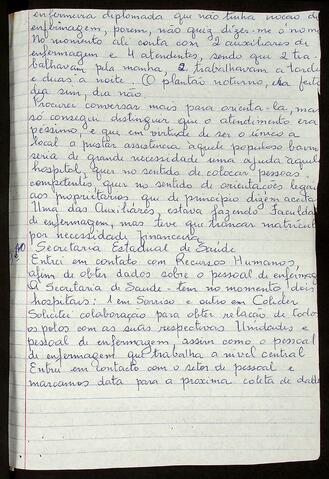 enfermeira diplomada que não tinha noção de
enfermagem, porem, não quiz dizer-me o nome
No momento ele conta com 2 auxiliares de
enfermagem e 4 atendentes, sendo que 2 tra-
balhavam pela manhã, 2 trabalhavam a tarde
e duas a noite. O plantão noturno, era feito
dia sim, dia não.
Procurei conversar mais para orienta-la, mas
só consegui distinguir que o atendimento era
péssimo, e que em virtude de ser o único a
local a prestar assistencia aquele populoso bairro
seria de grande necessidade uma ajuda aquele
hospital, quer no sentido de colocar pessoas
competentes quer no sentido de orientações legais
aos proprietarios que de principio dizem aceita
Uma das Auxiliares, estava fazendo Faculdade
de enfermagem, mas teve que trancar matricula
por necessidade financeira.
Secretaria Estadual de Saúde
Entrei em contato com Recursos Humanos,
afim de obter dados sobre o pessoal de enfermagem
A Secretaria de Saude - tem no momento, dois
hospitais: 1 em Sorriso e outro em Colider
Solicitei colaboração para obter relação de todos
os polos com as suas respectivas Unidades e
pessoal de enfermagem, assim como o pessoal
de enfermagem que trabalha a nivel central
Entrei em contacto com o setor de pessoal e
marcamos data para a proxima coleta de dados